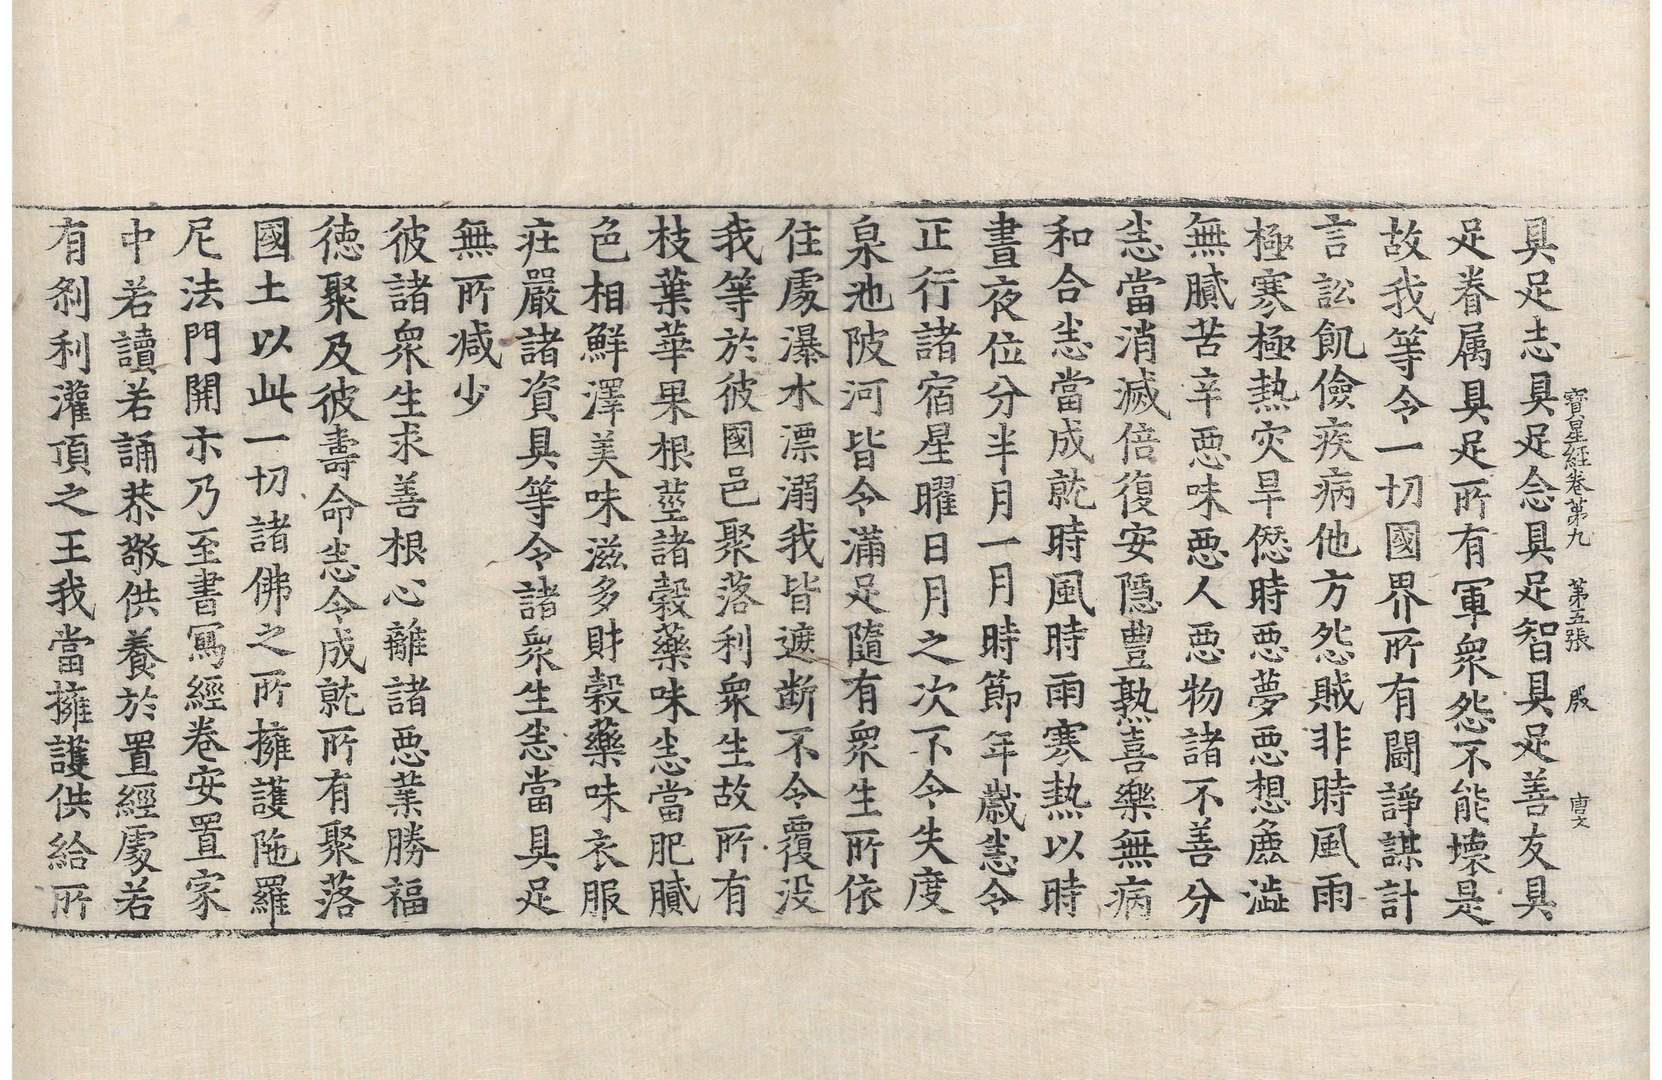 寶星経卷第九 第五張 殷
具足志具足念具足智具足善友具
足眷属具足所有軍衆怨不能壞是
故我等令一切國界所有鬪諍謀計
言訟飢儉疾病他方怨賊非時風雨
極寒極熱灾旱愆時惡夢惡想麁澁
無膩苦辛惡味惡人惡物諸不善分
悉當消滅倍復安隱豐熟喜樂無病
和合悉當成就時風時雨寒熱以時
晝夜位分半月一月時節年歳悉令
正行諸宿星曜日月之次不令失度
泉池陂河皆令滿足隨有衆生所依
住處瀑水漂溺我皆遮断不令覆没
我等於彼國邑聚落利衆生故所有
枝葉華果根莖諸穀藥味悉當肥膩
色相鮮澤美味滋多財穀藥味衣服
莊嚴諸資具等令諸衆生悉當具足
無所减少
彼諸衆生求善根心離諸惡業勝福
徳聚及彼壽命悉令成就所有聚落
國土以此一切諸佛之所擁護陁羅
尼法門開示乃至書寫經卷安置家
中若讀若誦恭敬供養於置經處若
有刹利灌頂之王我當擁護供給所